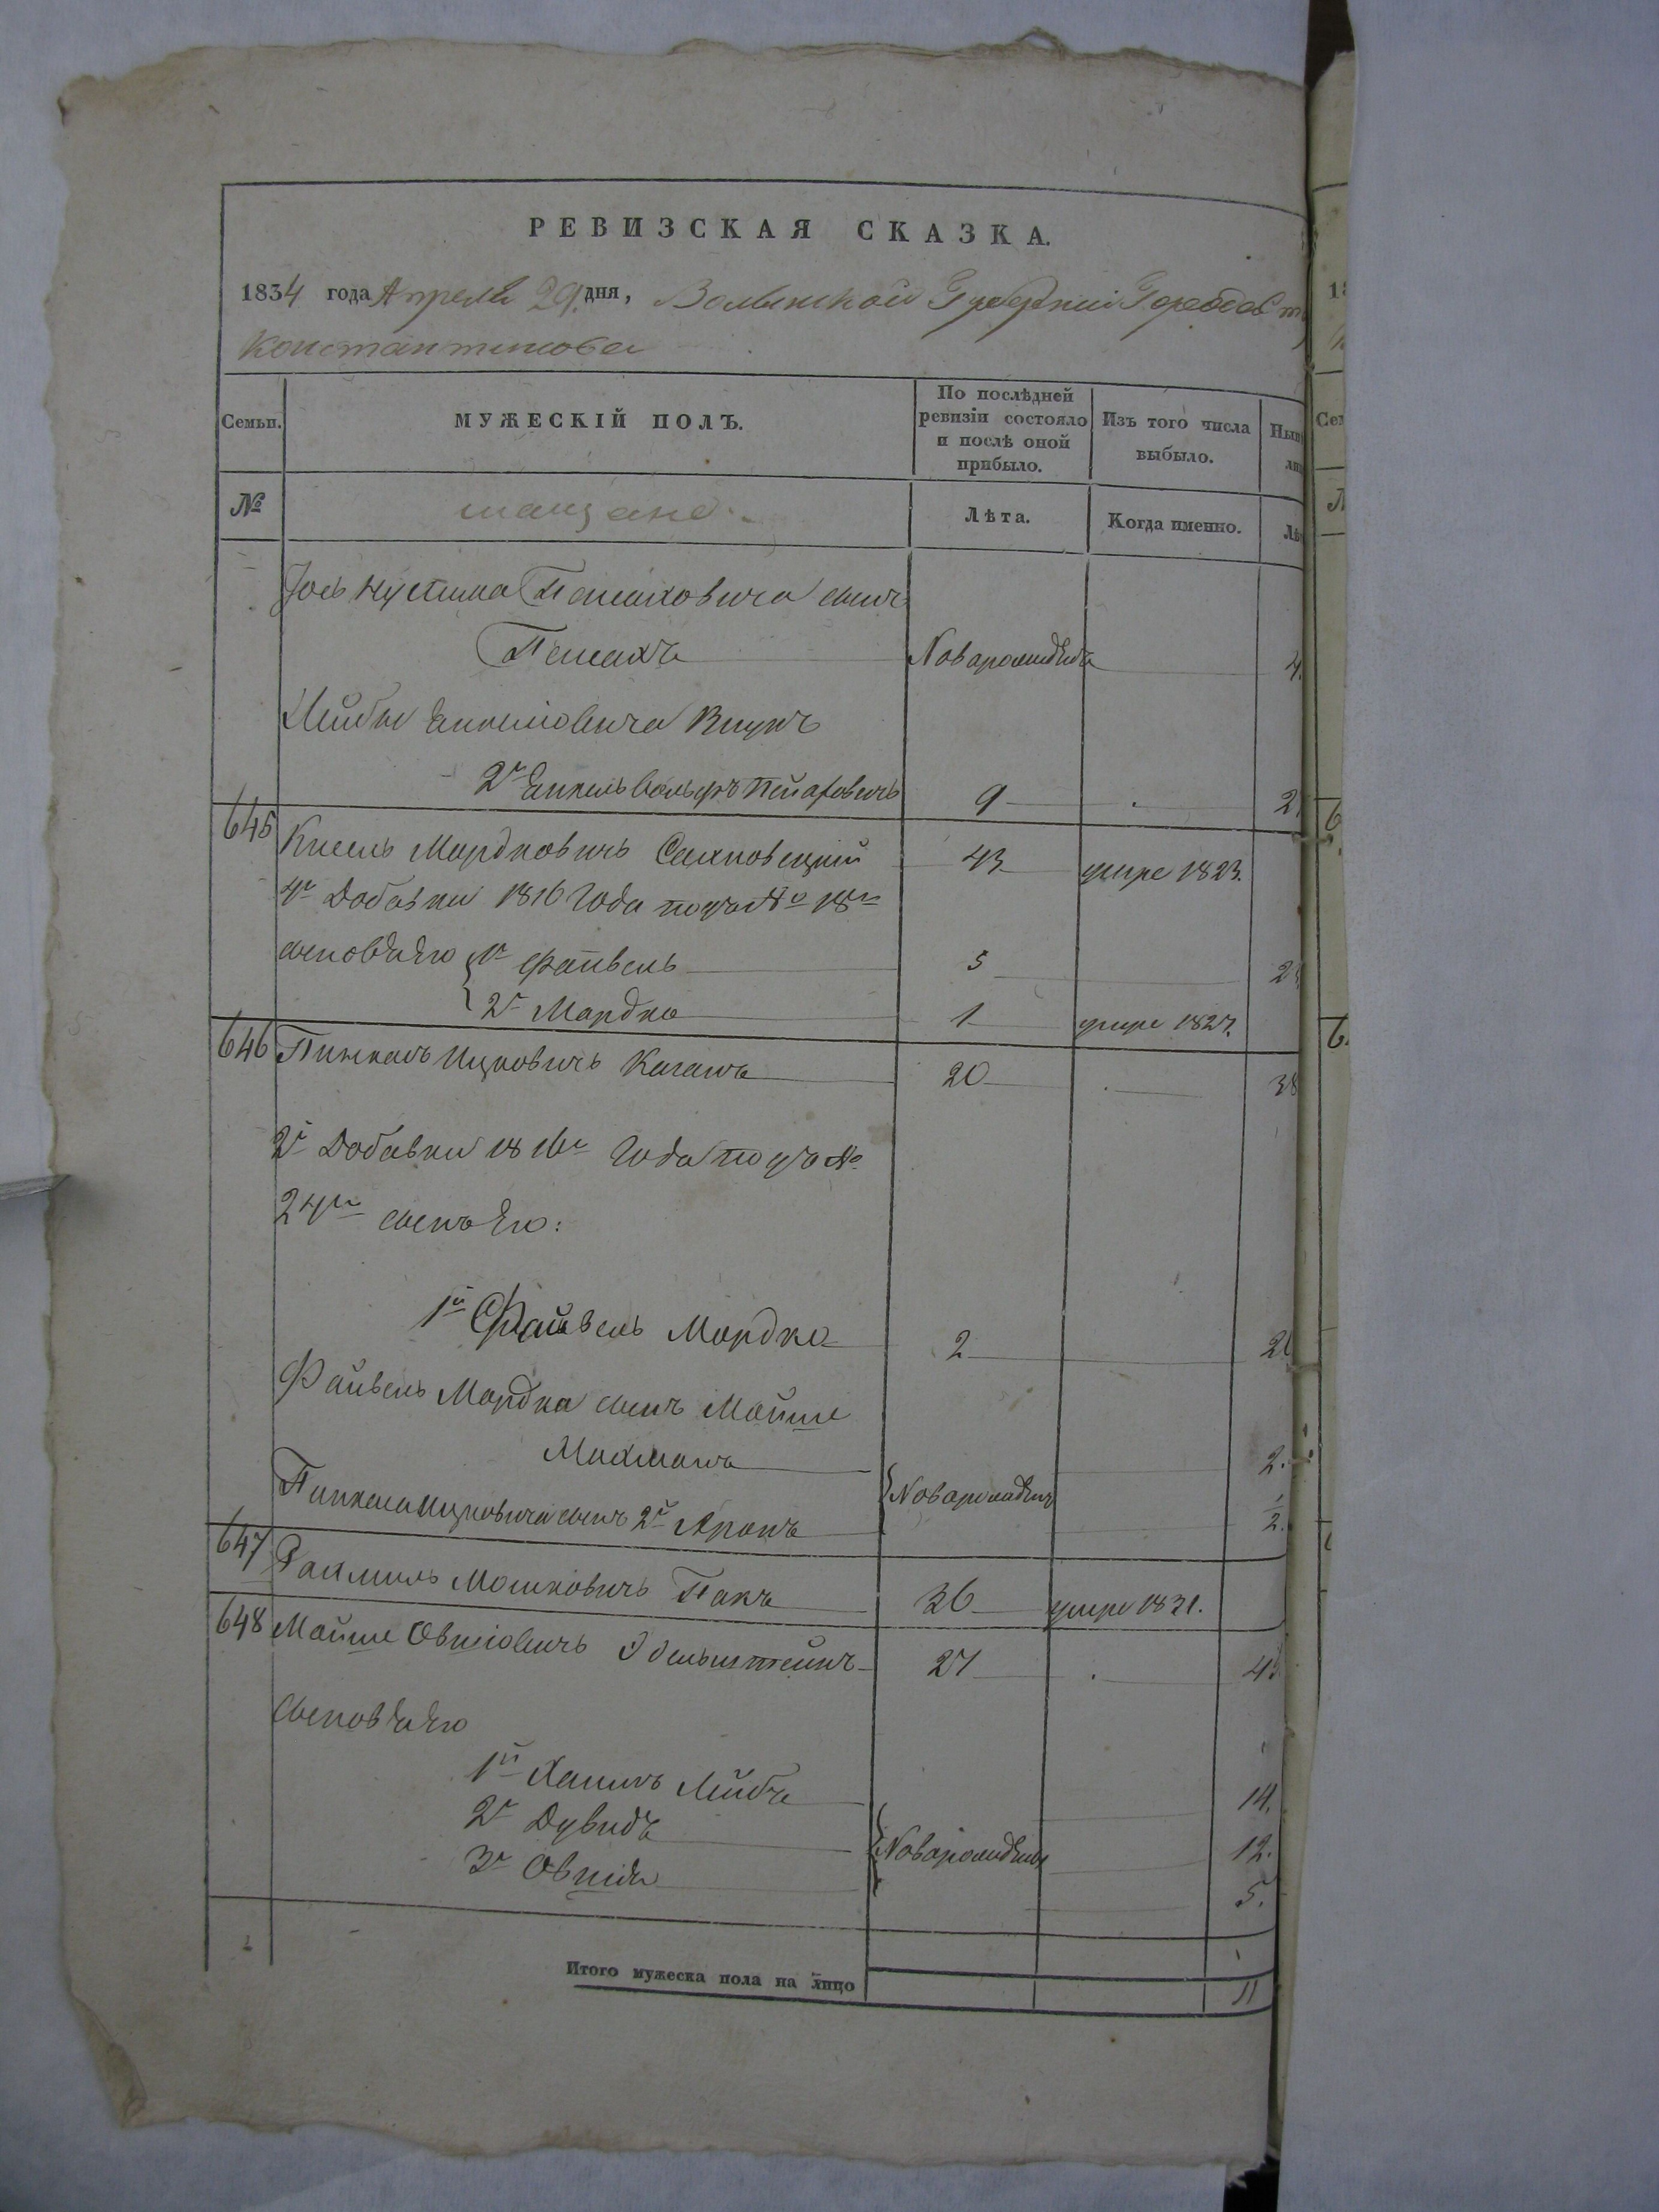 РЕВИЗСКАЯ СКАЗКА.
1834 года Апреля 29 дня, Волынской Губерніи Города
Константинова
Семьи. МУЖЕСКІЙ ПОЛЪ. По послѣдней ревизіи состояло и послѣ оной прибыло. Изъ того числа выбыло.
№ мещане. Лѣта. Когда именно.
Іось Нусима Песаховича сынъ
Песахъ Новорожденъ 4.
Лейбы Енкелiовича Внукъ
2й Енкель Волько 9 2
645 Кисель Мордковичъ 43 умре 1823.
4й Добавки 1816 Года подъ № 18м
сыновья Его 1й Файвель 5 2
2й Мордко 1 умре 1827.
646 Пинкасъ Ицковичъ Каганъ 20 38
2й Добавки 1816го Года подъ №
24м сынъ Его:
1й Файвель Мордко 2 20
Файвель Мордка сынъ Мойше
Нахманъ 2.
Пинкаса Ицковича сынъ 2й Аронъ Новорожденъ 1/2.
647 Рахмиль Мошковичъ Пакъ 36 умре 1831.
648 Мойше Овшіовичъ Эдельштейнъ 27 45
Сыновья Его
1й Хаимъ Лейба 14.
2й Дувидъ Новорожденны 12.
3й Овшія 5.
Итого мужеска пола на лицо 11